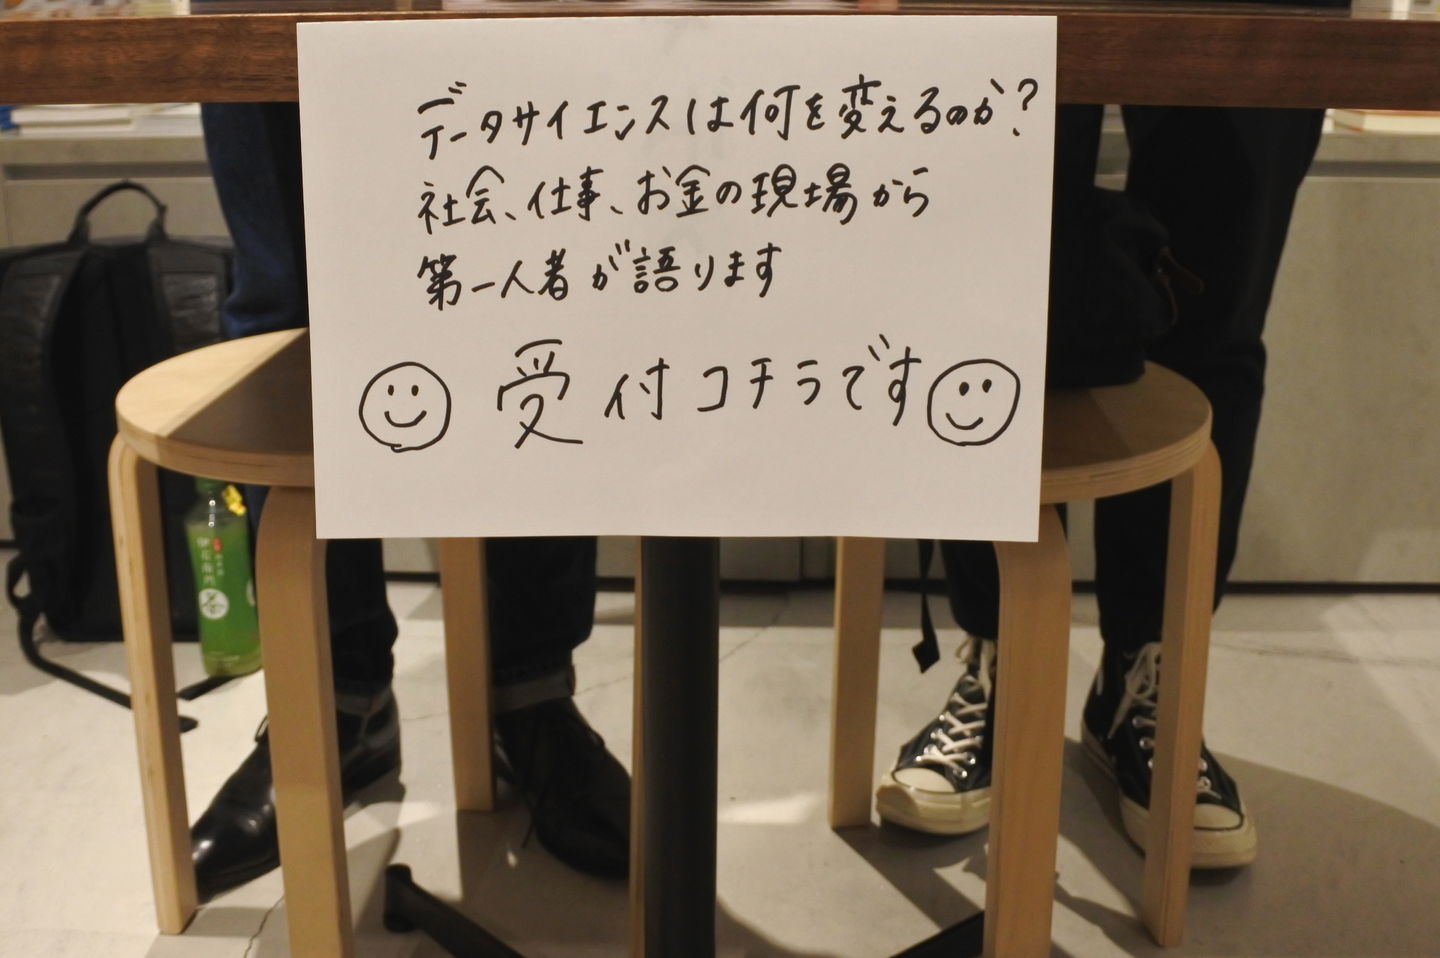 データサイエンスは何を変えるのか?
社会、仕事、お金の現場から
第一人者が語ります
受付コチラです
伊右衛門